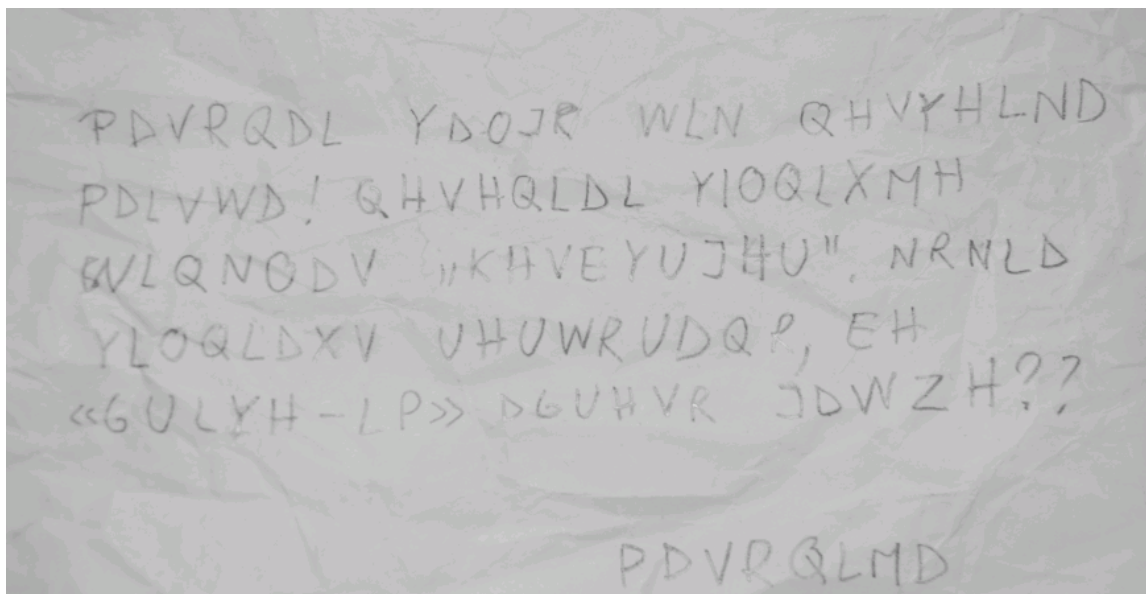 PDVRQDL YDOJR WLN QHVYHLND
PDLVWD! QHVHQLDL YIOQLXMH
WLQNODV „KHVEYUJHU". NRNLD
YLOQLDXV UHUWRUDQR, EH
«GULYH-LP» DGUHVR JDWZH??
PDVRQLMD